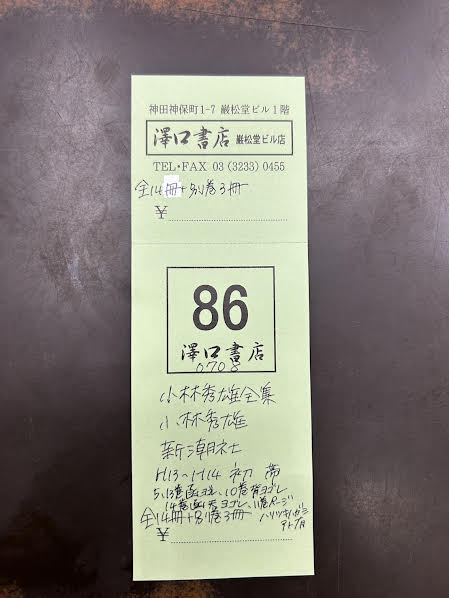 神田神保町1-7 巌松堂ビル1階
澤口書店 巌松堂ビル店
TEL・FAX 03 (3233) 0455
全14冊+別巻3冊
¥
86
澤口書店
0708
小林秀雄全集
小林秀雄
新潮社
H13〜H14 初 帯
5、13巻函ヨゴレ、10巻背ヨゴレ
14巻函背ヨゴレ、11巻ページ
全14冊+別巻3冊 ハリツキハガシ
アト7月
¥